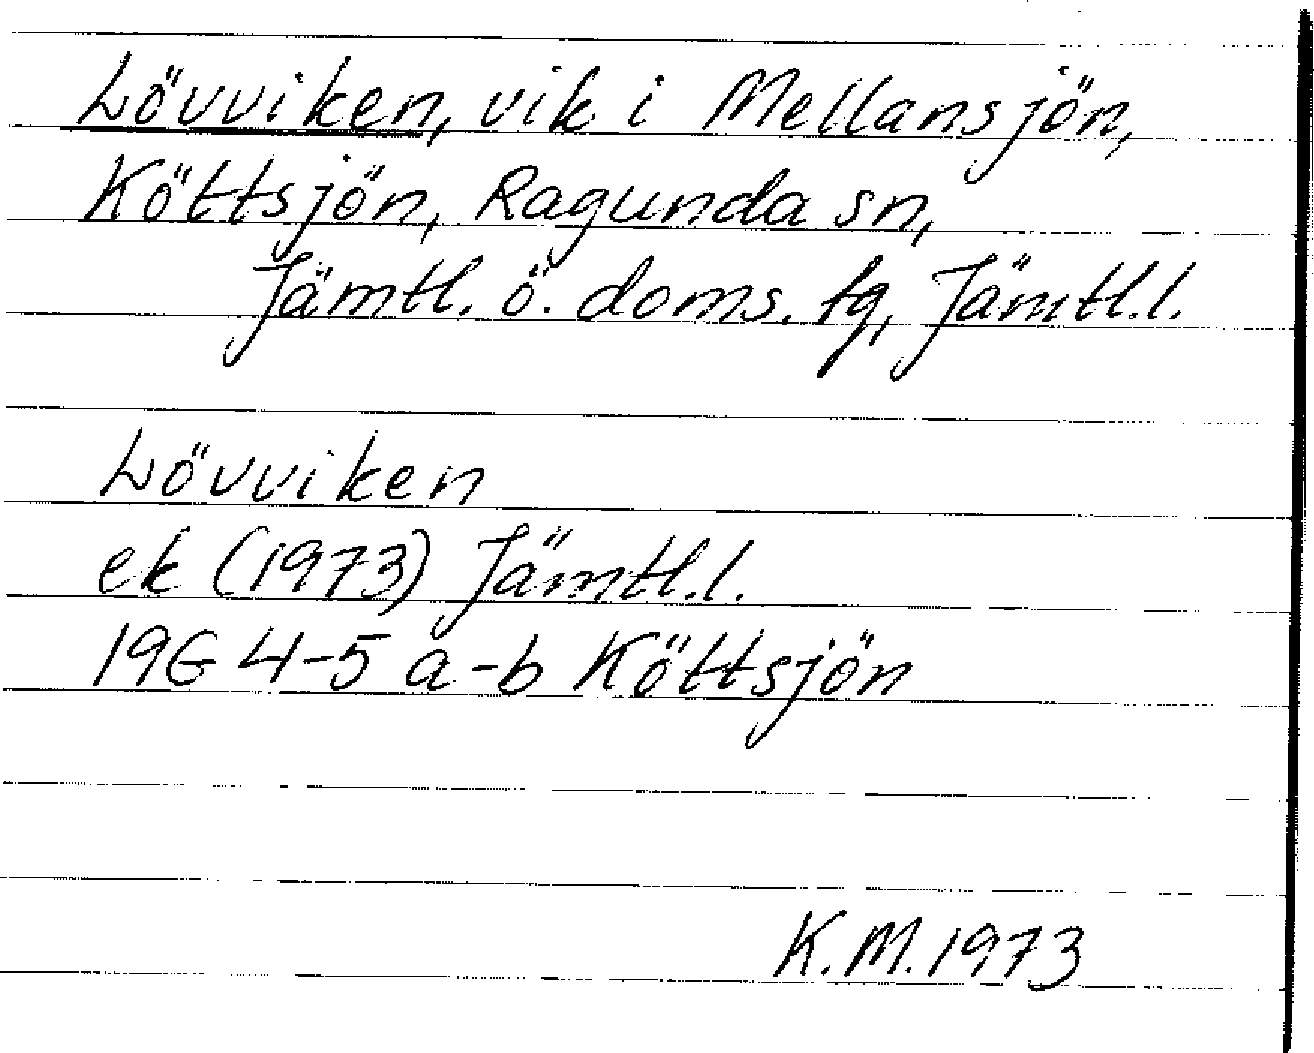 Lövviken, vik i Mellansjön,
Köttsjön, Ragunda sn,
Jämtl. ö. doms. tg, Jämtl.l.
Lövviken
ek (1973) Jämtl.l.
19G 4-5 a-b Köttsjön
K.M. 1973